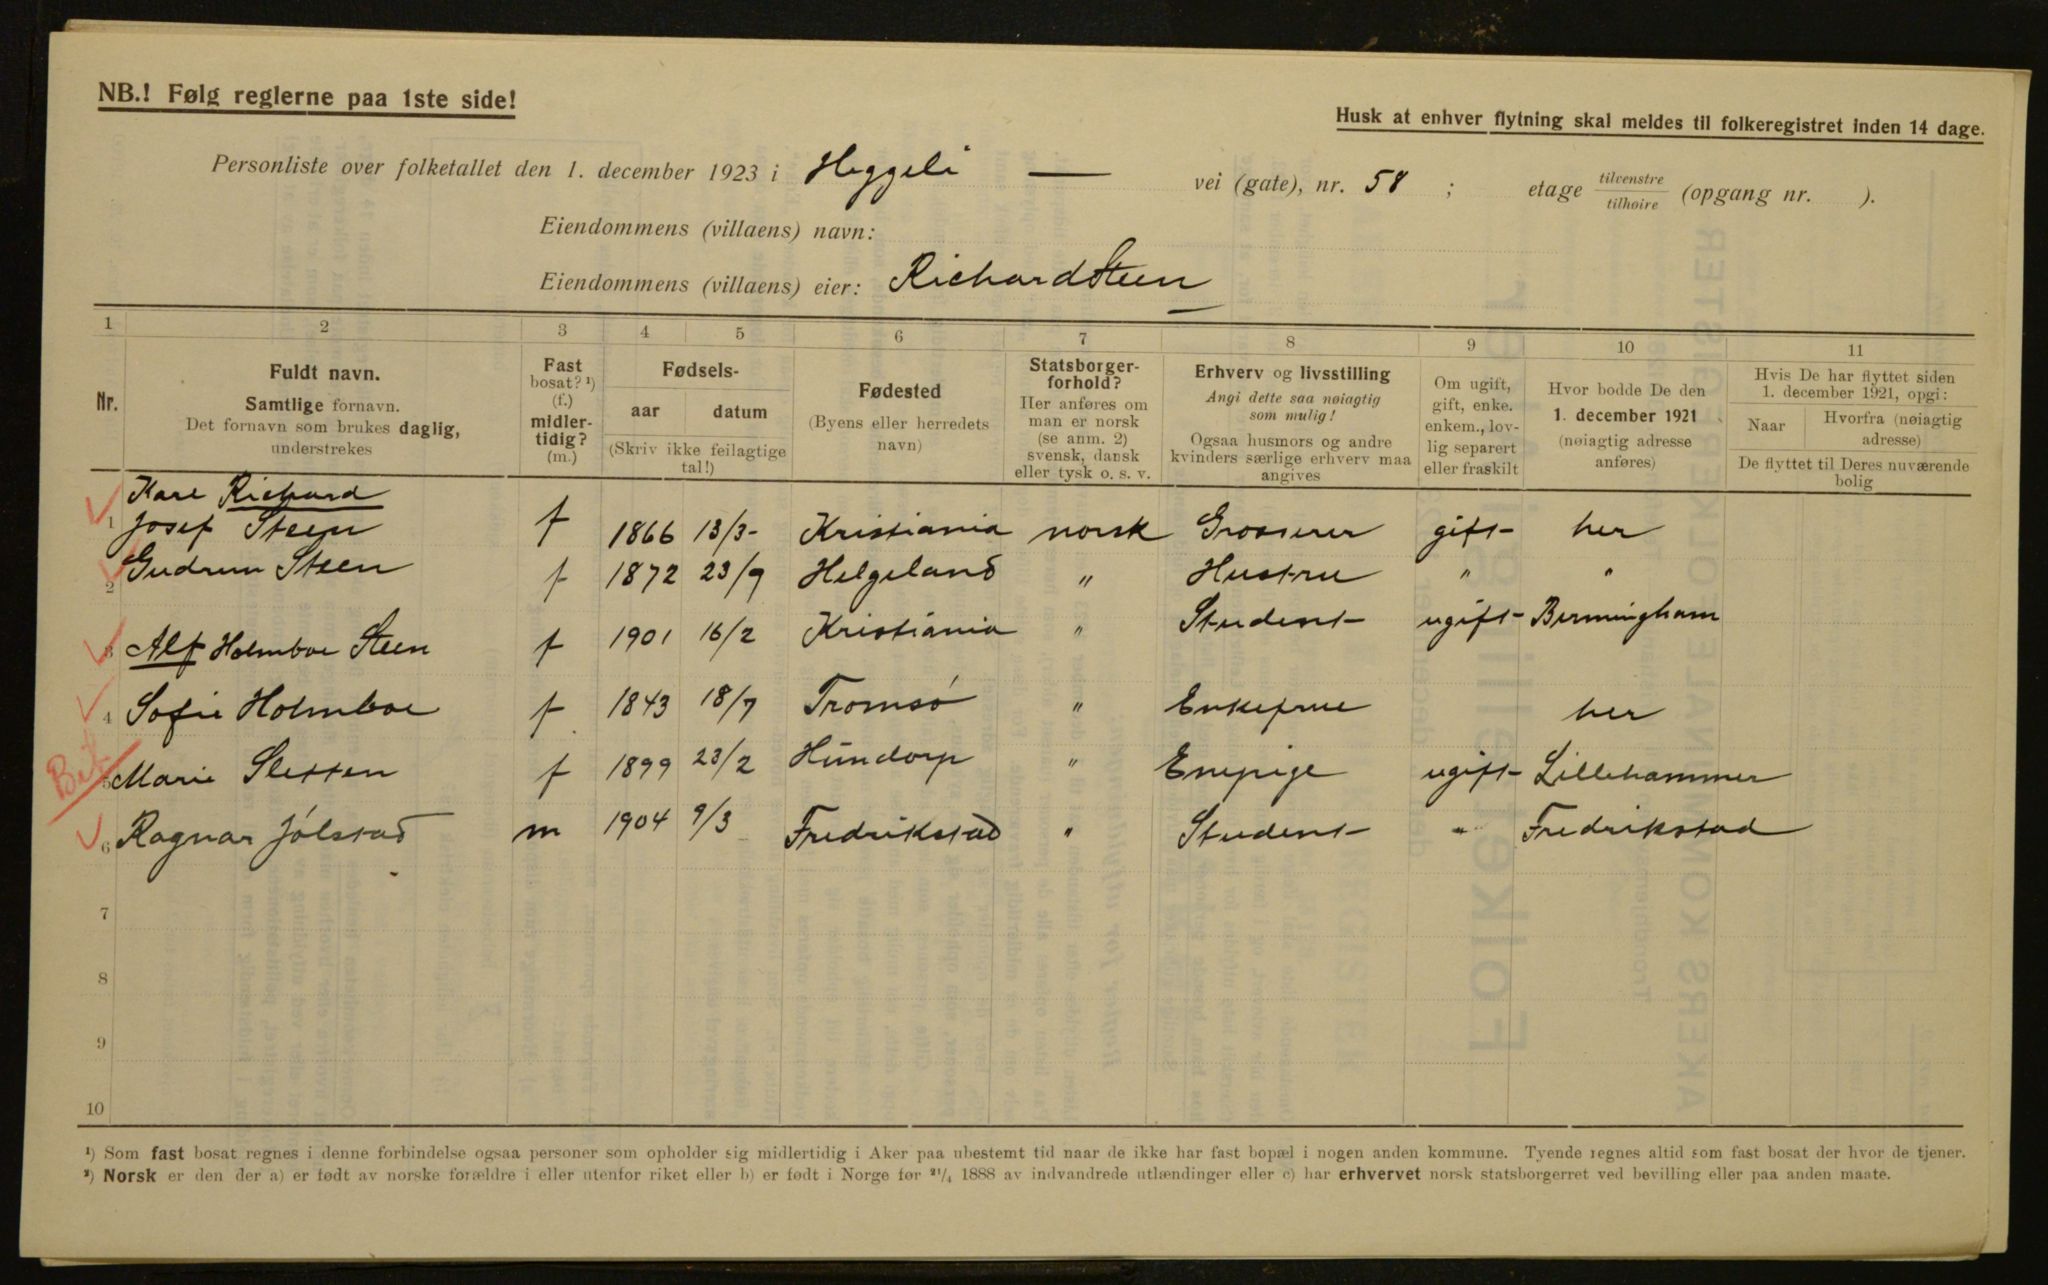 NB.! Følg reglerne paa 1ste side!
Husk at enhver flytning skal meldes til folkeregistret inden 14 dage.
Personliste over folketallet den 1. december 1923 i Heggeli — vei (gate), nr. 58 ; etage tilvenstre/tilhøire (opgang nr. ).
Eiendommens (villaens) navn:
Eiendommens (villaens) eier: Richard Steen
1 2 3 4 5 6 7 8 9 10 11
Nr.
Fuldt navn.
Samtlige fornavn.
Det fornavn som brukes daglig,
understrekes
Fast
bosat? ¹)
(f.)
midler-
tidig?
(m.)
Fødsels-
aar datum
(Skriv ikke feilagtige
tal!)
Fødested
(Byens eller herredets
navn)
Statsborger-
forhold?
Her anføres om
man er norsk
(se anm. 2)
svensk, dansk
eller tysk o. s. v.
Erhverv og livsstilling
Angi dette saa nøiagtig
som mulig!
Ogsaa husmors og andre
kvinders særlige erhverv maa
angives
Om ugift,
gift, enke.
enkem., lov-
lig separert
eller fraskilt
Hvor bodde De den
1. december 1921
(nøiagtig adresse
anføres)
Hvis De har flyttet siden
1. december 1921, opgi:
Naar Hvorfra (nøiagtig
adresse)
De flyttet til Deres nuværende
bolig
Karl Richard
1 Josef Steen f 1866 13/3- Kristiania norsk Grosserer gift her
2 Gudrun Steen f 1872 23/9 Helgeland " Hustru " "
3 Alf Holmboe Steen f 1901 16/2 Kristiania " Student ugift Birmingham
4 Sofie Holmboe f 1843 18/7 Tromsø " Enkefrue her
5 Marie Sletten f 1899 23/2 Hundorp " Enepige ugift Lillehammer
6 Ragnar Jølstad m 1904 9/3 Fredrikstad " Student " Fredrikstad
7
8
9
10
¹) Som fast bosat regnes i denne forbindelse ogsaa personer som opholder sig midlertidig i Aker paa ubestemt tid naar de ikke har fast bopæl i nogen anden kommune. Tyende regnes altid som fast bosat der hvor de tjener.
²) Norsk er den der a) er født av norske forældre i eller utenfor riket eller b) er født i Norge før ²¹/₄ 1888 av indvandrede utlændinger eller c) har erhvervet norsk statsborgerret ved bevilling eller paa anden maate.